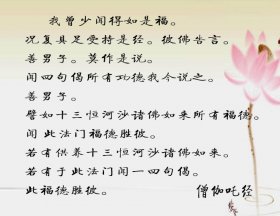 我曾少闻得如是福。
况复具足受持是经。彼佛告言。
善男子。莫作是说。
闻四句偈所有功德我今说之。
善男子。
譬如十三恒河沙诸佛如来所有福德。
闻此法门福德胜彼。
若有供养十三恒河沙诸佛如来。
若有于此法门闻一四句偈。
此福德胜彼。
僧伽吒经